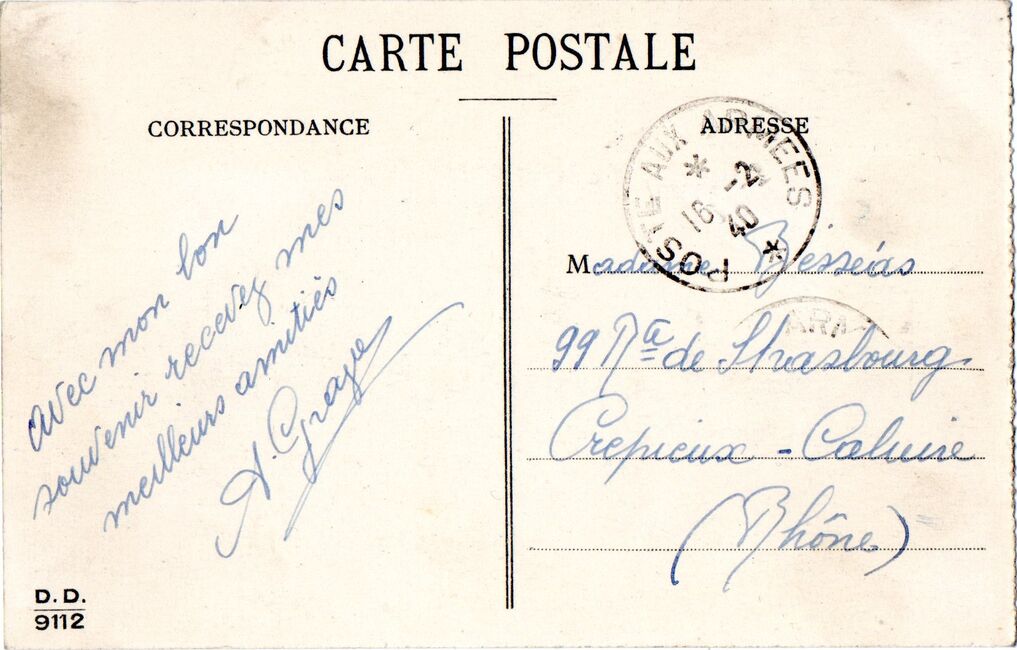 CARTE POSTALE
CORRESPONDANCE
avec mon bon
souvenir recevez mes
meilleurs amitiés
D.D.
9112
ADRESSE
POSTE AUX ARMEES
* 
16 2
40
*
Madame
99 Rte de Strasbourg
Crepieux - Caluire
(Rhône)
ARM